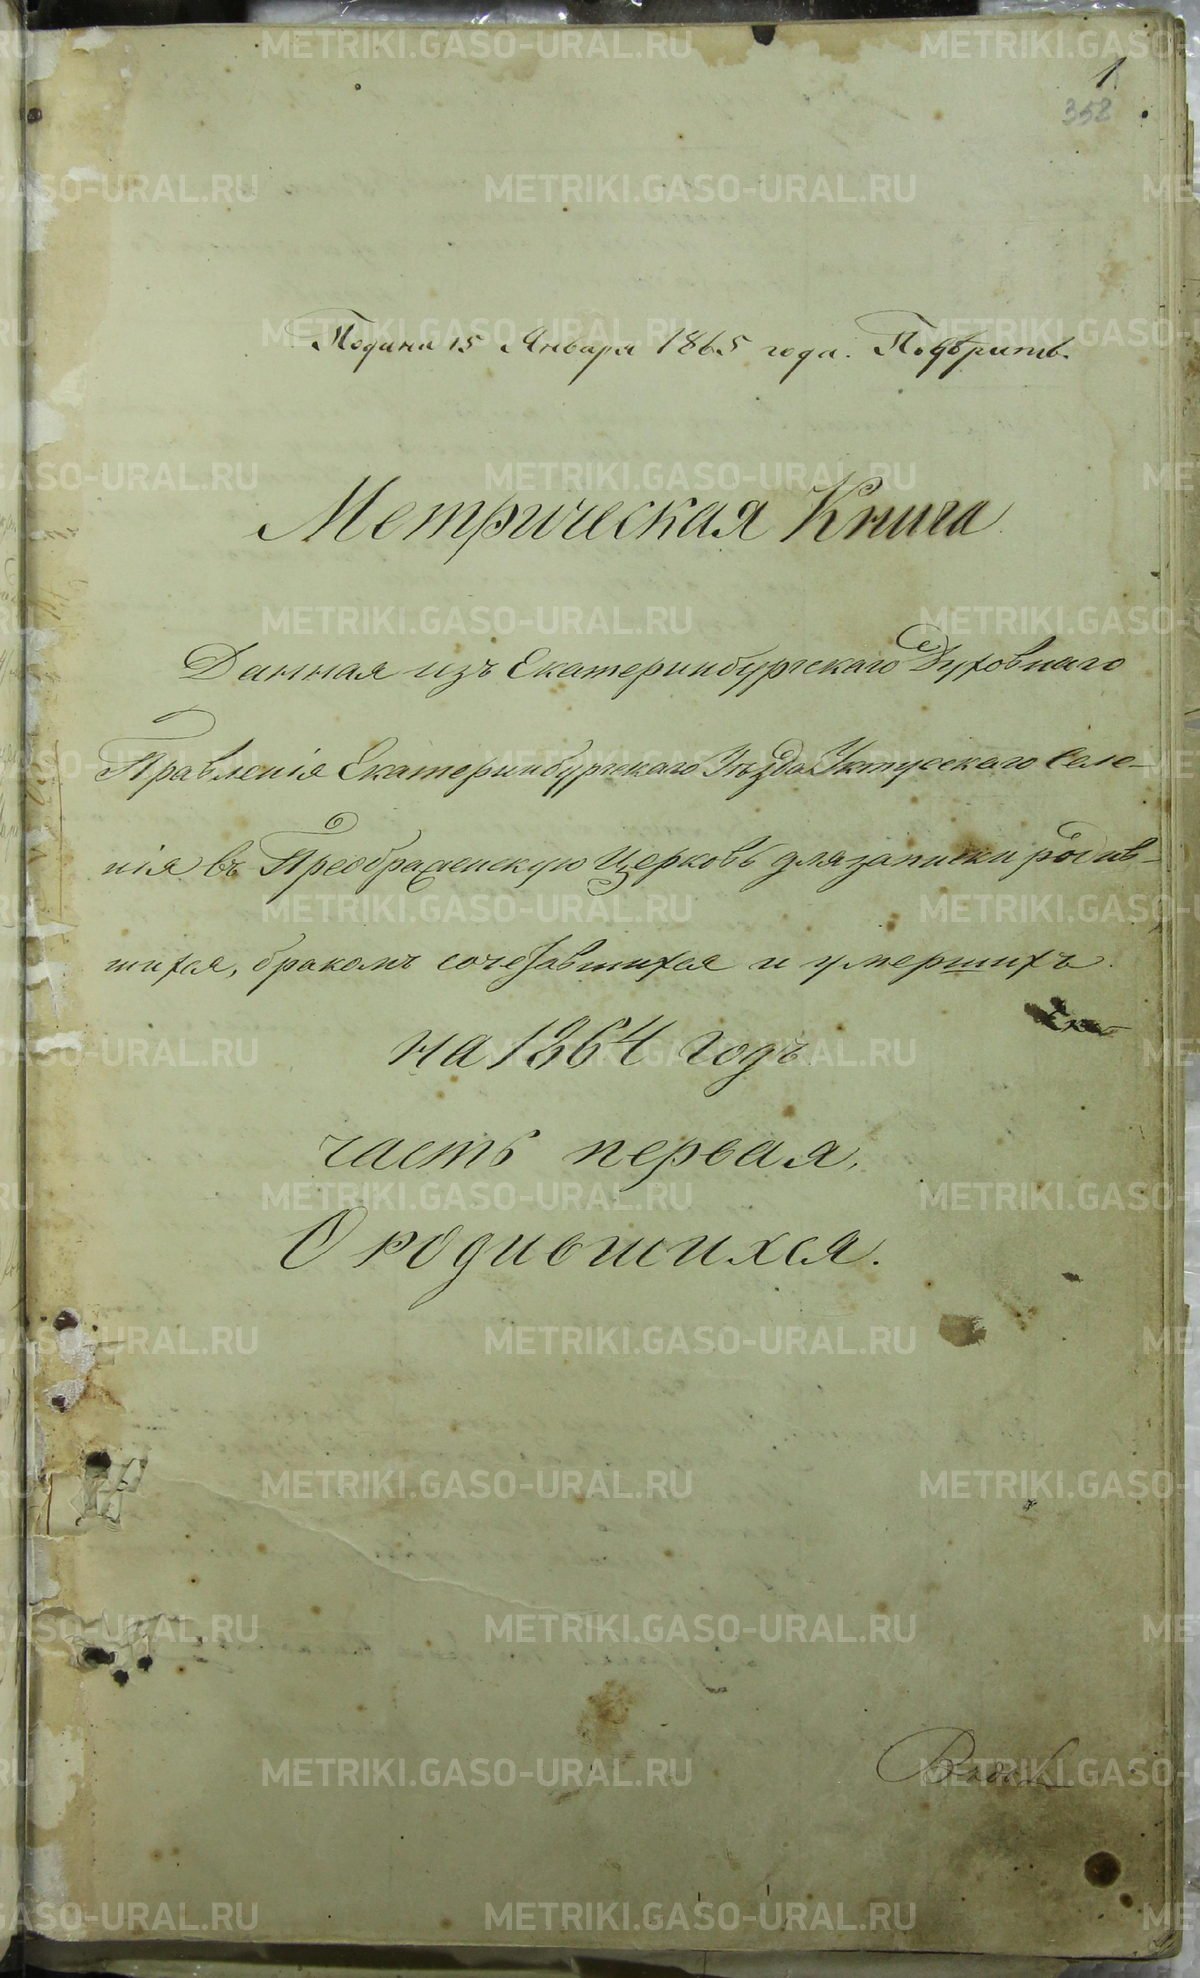 1
352
Подана 15 Января 1865 года. Повѣрить.
Метрическая Книга
Данная изъ Екатеринбургскаго Духовнаго
Правленія Екатеринбургскаго Уѣзда Уктусскаго Селе-
нія въ Преображенскую Церковь для записки родив-
шихся, бракомъ сочетавшихся и умершихъ.
на 1864 годъ.
часть первая.
О родившихся.
METRIKI.GASO-URAL.RU